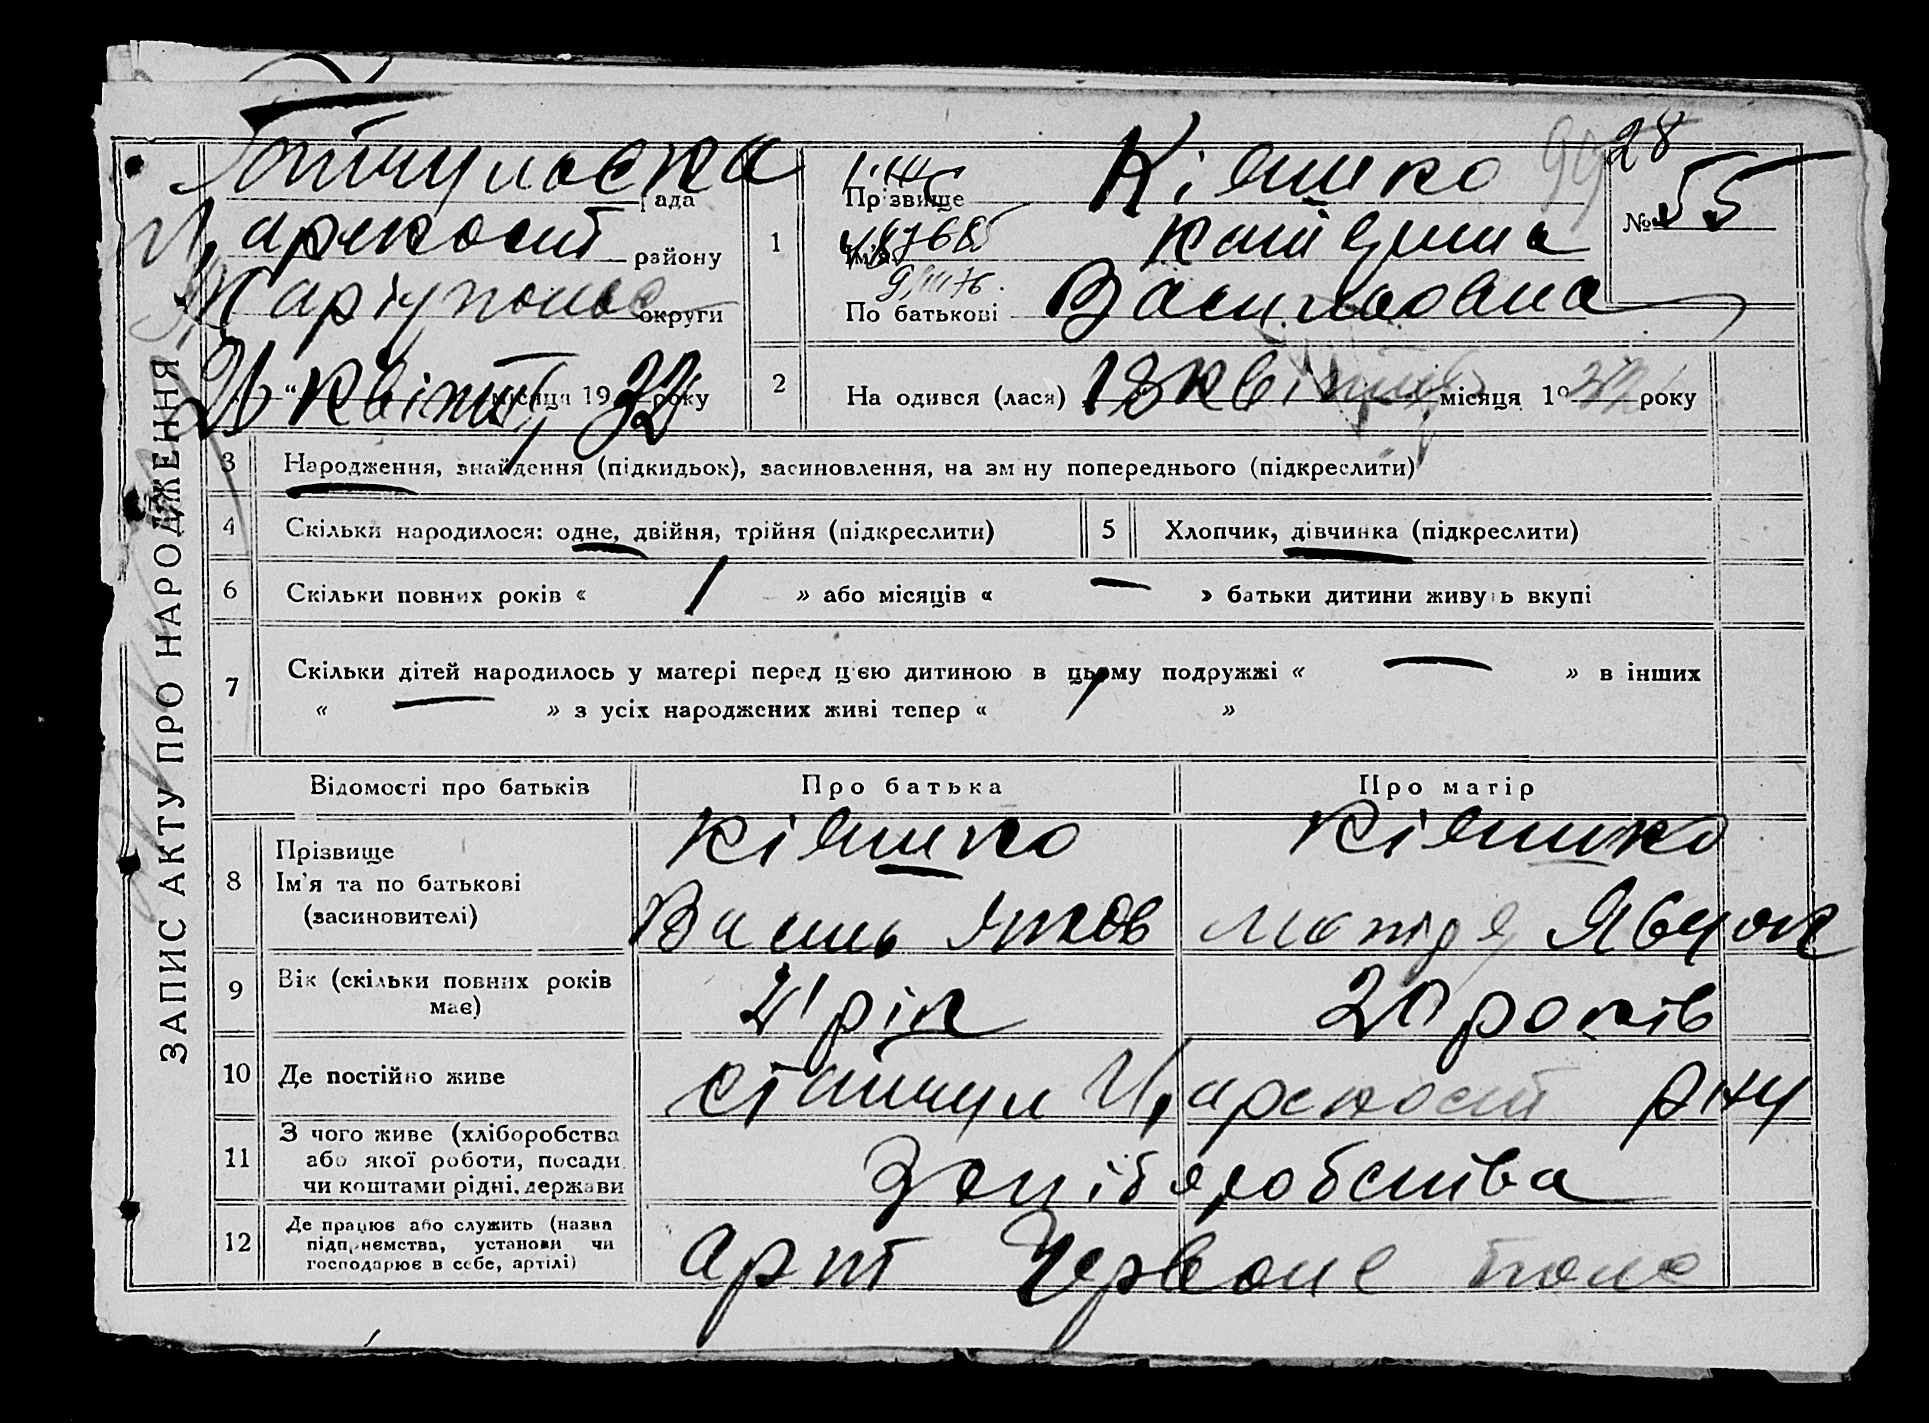 ЗАПИС АКТУ ПРО НАРОДЖЕННЯ
рада
району
Маріуполь округи
26 “ квітня місяця 1932 року
28
№ 55
1
Прізвище Кіяшко
Ім'я Катерина
По батькові Василовна
2
На одився (лася) 18 квітня місяця 1932 року
3 Народження, знайдення (підкидьок), засиновлення, на зм ну попереднього (підкреслити)
4 Скільки народилося: одне, двійня, трійня (підкреслити)
5 Хлопчик, дівчинка (підкреслити)
6 Скільки повних років « 1 » або місяців « — » батьки дитини живуть вкупі
7 Скільки дітей народилось у матері перед цією дитиною в цьому подружжі « — » в інших
« — » з усіх народжених живі тепер « »
Відомості про батьків Про батька Про матір
8 Прізвище Кіяшко Кіяшко
Ім'я та по батькові
(засиновителі) Василь Яков
9 Вік (скільки повних років має) 21 рік 20 років
10 Де постійно живе
11 З чого живе (хліборобства
або якої роботи, посади
чи коштами рідні, держави
12 Де працює або служить (назва
підприємства, установи чи
господарює в себе, артілі) арт Червоне поле